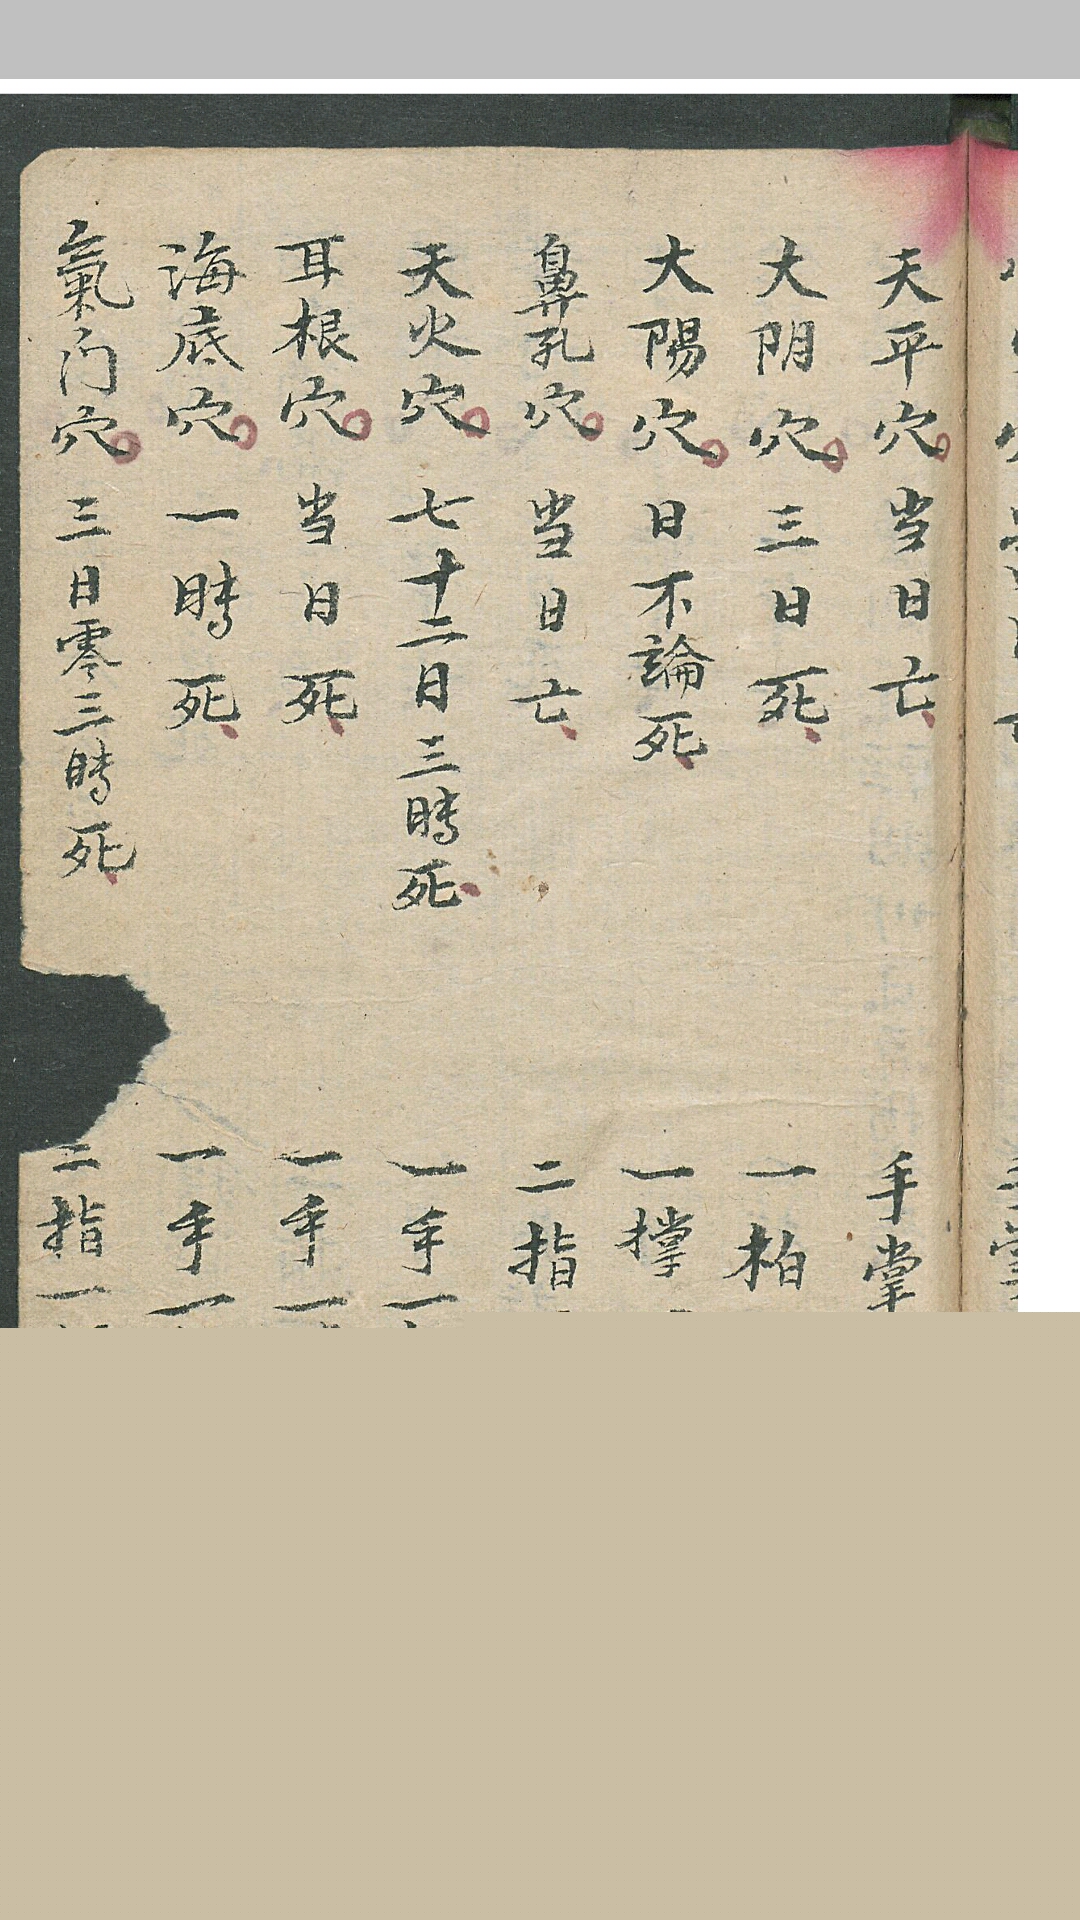 天平穴 当日亡 手掌
大阴穴 三日死 一柏
大陽穴 日不論死 一撑
鼻孔穴 当日亡 二指
天火穴 七十二日三時死 一手一
耳根穴 当日死 一手一
海底穴 一時死 一手一
氣门穴 三日零三時死 二指一